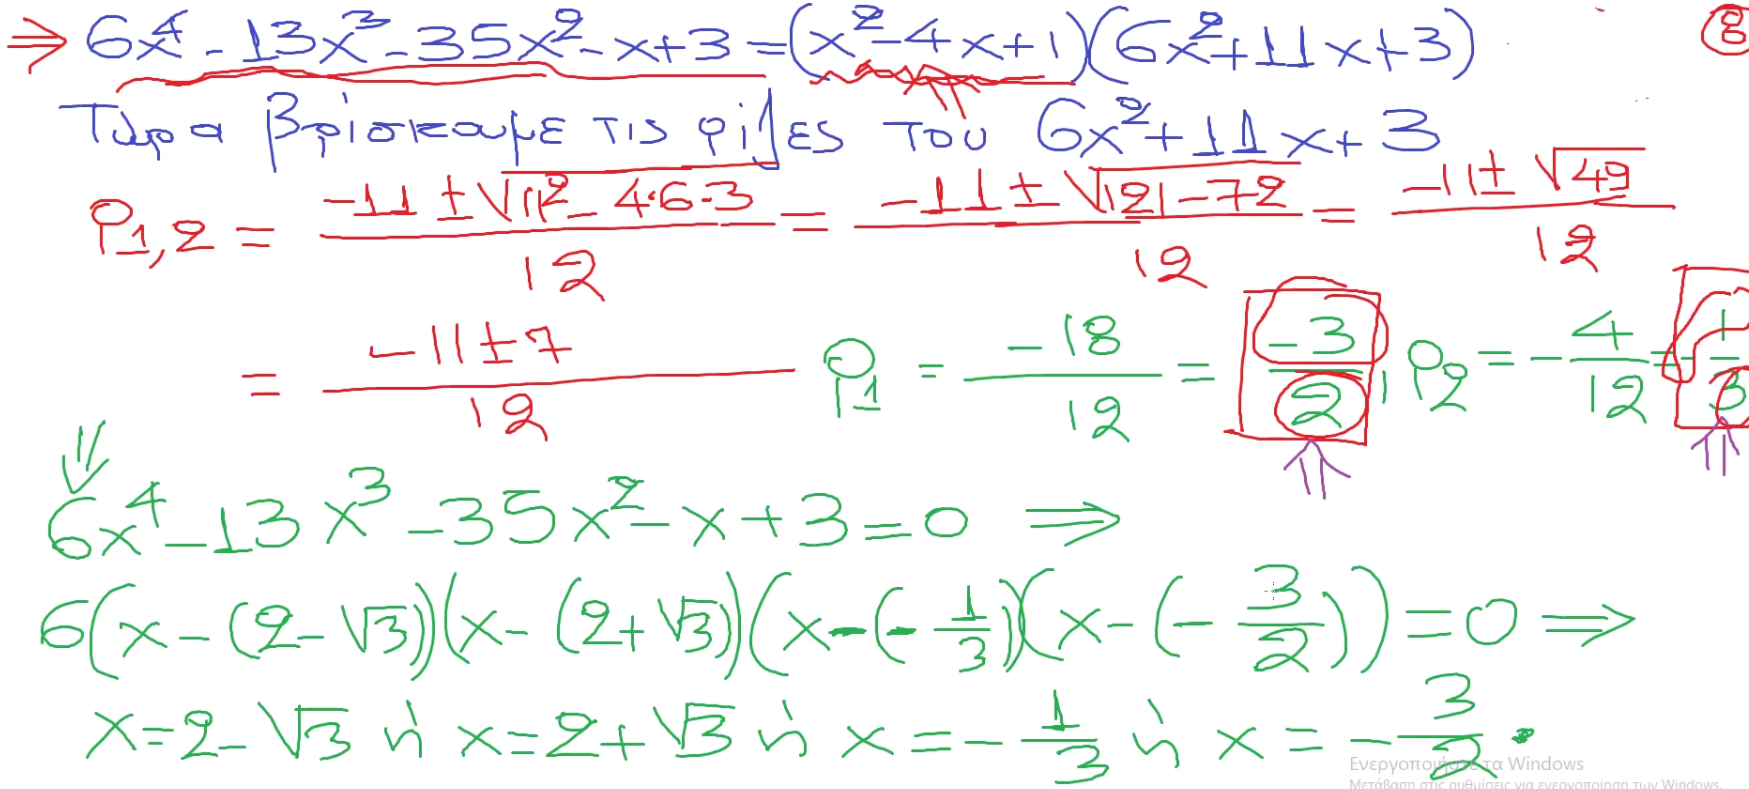 ⇒ 6x⁴ - 13x³ - 35x² - x + 3 = (x² - 4x + 1)(6x² + 11x + 3) 8
Τωρα βρίσκουμε τις ρίζες του 6x² + 11x + 3
ρ₁,₂ = (-11 ± √(11² - 4·6·3))/12 = (-11 ± √(121 - 72))/12 = (-11 ± √49)/12
= (-11 ± 7)/12 ρ₁ = -18/12 = -3/2, ρ₂ = -4/12 = -1/3
6x⁴ - 13x³ - 35x² - x + 3 = 0 ⇒
6(x - (2 - √3))(x - (2 + √3))(x - (-1/3))(x - (-3/2)) = 0 ⇒
x = 2 - √3 ή x = 2 + √3 ή x = -1/3 ή x = -3/2.
Ενεργοποιήστε τα Windows
Μετάβαση στις ρυθμίσεις για ενεργοποίηση των Windows.